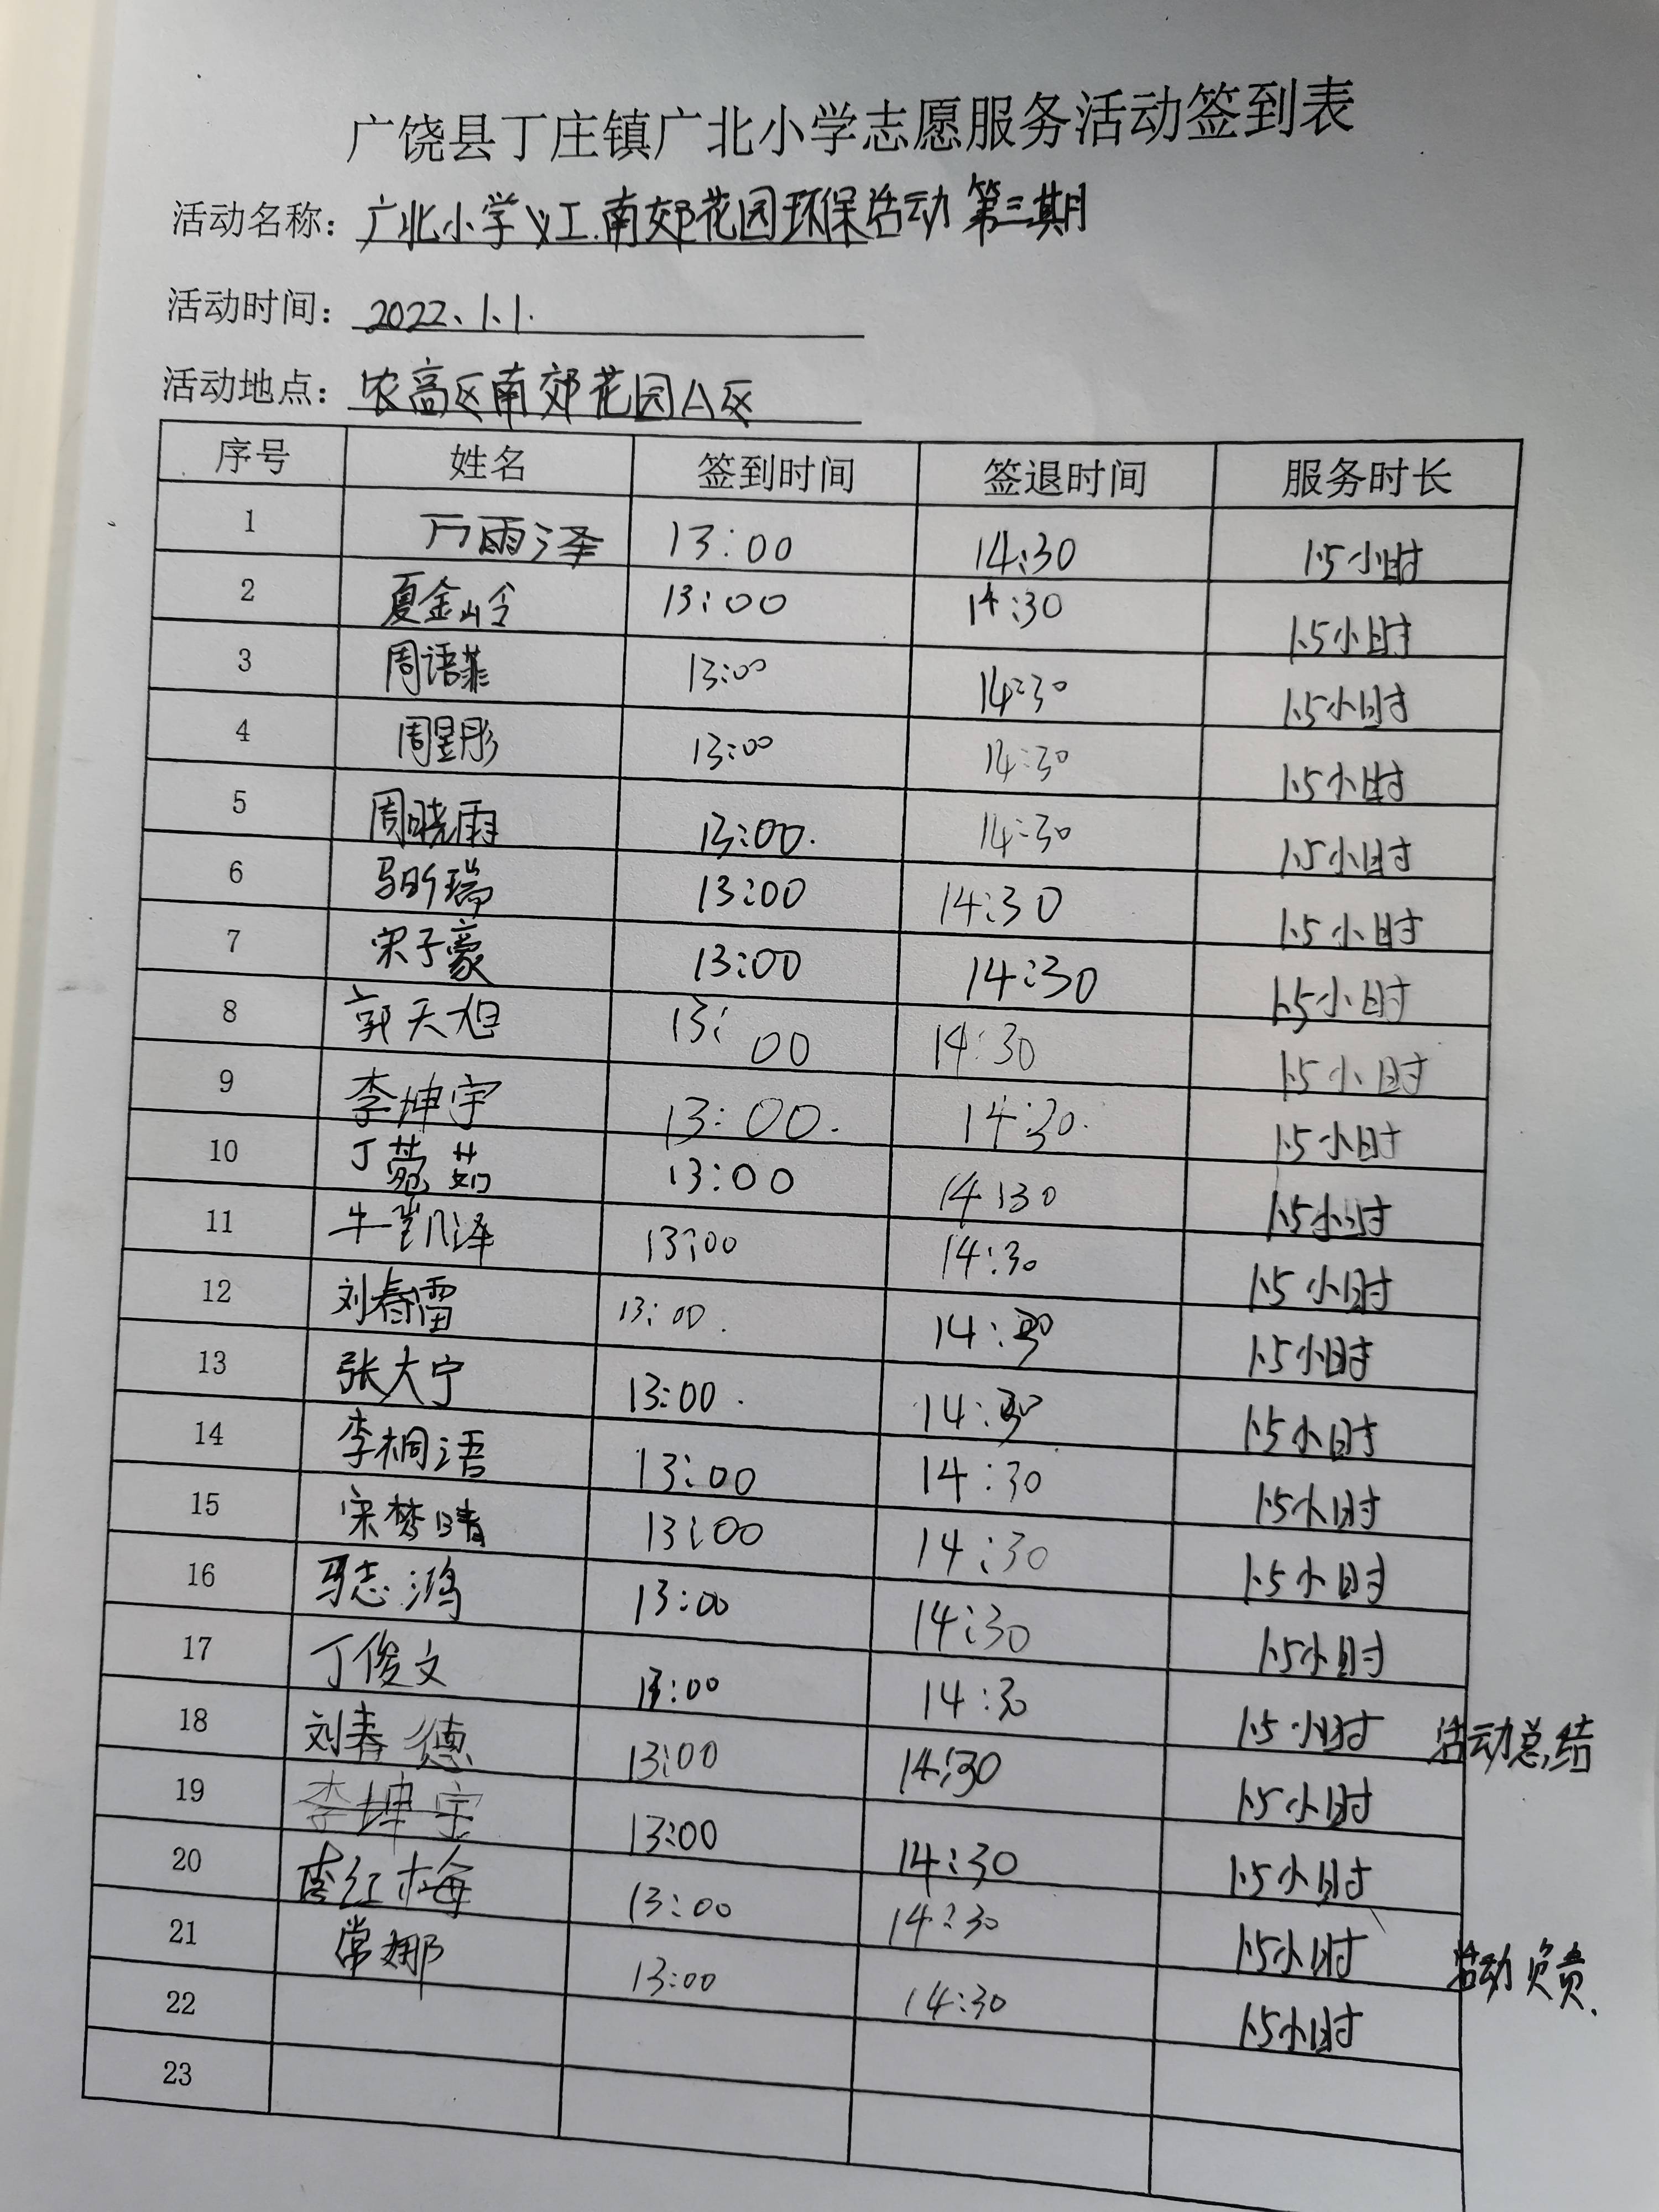 广饶县丁庄镇广北小学志愿服务活动签到表
活动名称：广北小学义工.南郊花园环保活动 第三期
活动时间：2022.1.1.
活动地点：农高区南郊花园A区
序号 姓名 签到时间 签退时间 服务时长
1 万雨泽 13:00 14:30 1.5小时
2 夏金岭 13:00 14:30 1.5小时
3 周语菲 13:00 14:30 1.5小时
4 周昱彤 13:00 14:30 1.5小时
5 周晓雨 13:00. 14:30 1.5小时
6 马昕瑞 13:00 14:30 1.5小时
7 宋子豪 13:00 14:30 1.5小时
8 郭天旭 13:00 14:30 1.5小时
9 李坤宇 13:00. 14:30. 1.5小时
10 丁菀茹 13:00 14:30 1.5小时
11 牛凯泽 13:00 14:30 1.5小时
12 刘春雷 13:00. 14:30 1.5小时
13 张大宁 13:00. 14:30 1.5小时
14 李桐语 13:00 14:30 1.5小时
15 宋梦晴 13:00 14:30 1.5小时
16 马志鸿 13:00 14:30 1.5小时
17 丁俊文 13:00 14:30 1.5小时 活动总结
18 刘春德 13:00 14:30 1.5小时
19 李坤宇 13:00 14:30 1.5小时
20 李红梅 13:00 14:30 1.5小时 活动负责.
21 常娜 13:00 14:30 1.5小时
22
23